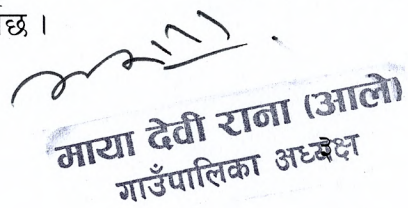 छ ।
माया देवी राना (आले)
गाउँपालिका अध्यक्ष